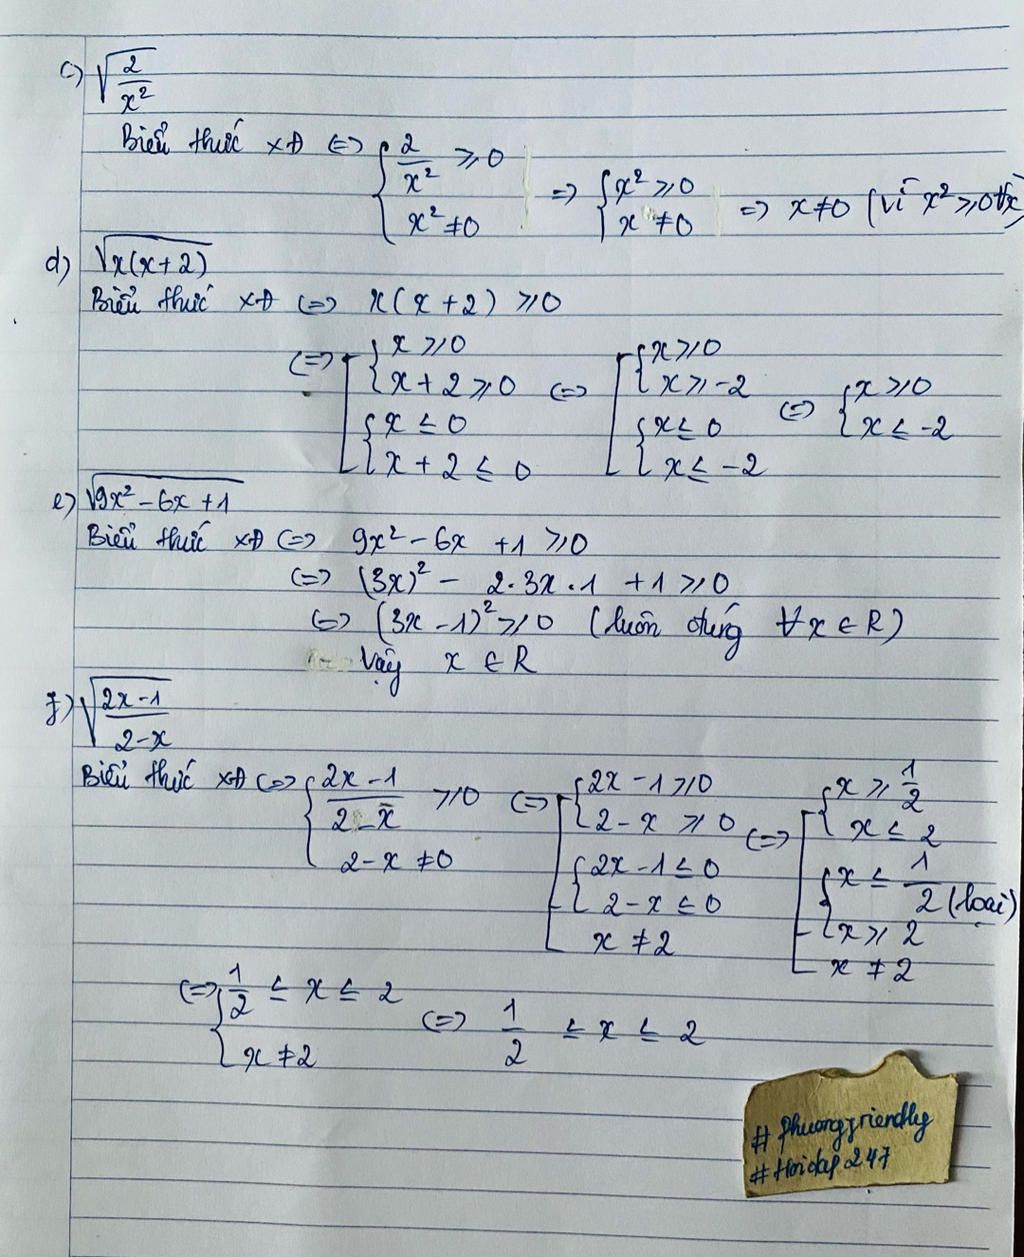 c) √(2/x²)
Biểu thức xĐ <=> { 2/x² ⩾ 0 ; x² ≠ 0 => { x² ⩾ 0 ; x ≠ 0 => x ≠ 0 (vì x² ⩾ 0 ∀x)
d) √(x(x+2))
Biểu thức xĐ <=> x(x+2) ⩾ 0
<=> [ { x ⩾ 0 ; x + 2 ⩾ 0 ; { x ≤ 0 ; x + 2 ≤ 0 <=> [ { x ⩾ 0 ; x ⩾ -2 ; { x ≤ 0 ; x ≤ -2 <=> { x ⩾ 0 ; x ≤ -2
e) √(9x² - 6x + 1)
Biểu thức xĐ <=> 9x² - 6x + 1 ⩾ 0
<=> (3x)² - 2.3x.1 + 1 ⩾ 0
<=> (3x - 1)² ⩾ 0 (luôn đúng ∀x ∈ R)
Vậy x ∈ R
f) √((2x-1)/(2-x))
Biểu thức xĐ <=> { (2x-1)/(2-x) ⩾ 0 ; 2-x ≠ 0 <=> [ { 2x-1 ⩾ 0 ; 2-x ⩾ 0 ; { 2x-1 ≤ 0 ; 2-x ≤ 0 ; x ≠ 2 <=> [ { x ⩾ 1/2 ; x ≤ 2 ; { x ≤ 1/2 ; x ⩾ 2 (loại) ; x ≠ 2
<=> { 1/2 ≤ x ≤ 2 ; x ≠ 2 <=> 1/2 ≤ x ≤ 2
# phuongfriendly
# Hoidap247